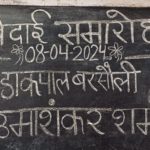 विदाई समारोह
08-04-2024
डाकपाल बरसौली
उमाशंकर शर्मा